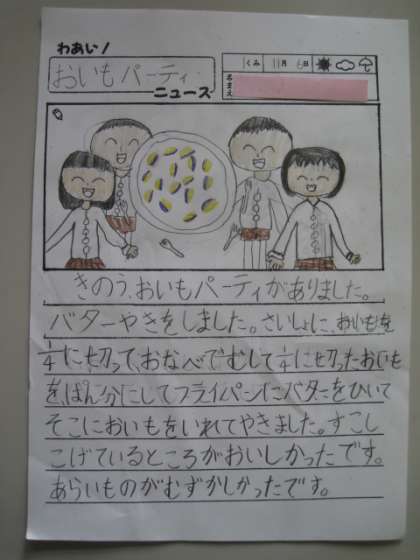 わあい!
おいもパーティ
ニュース
くみ 11月 6日
なまえ
きのう、おいもパーティがありました。
バターやきをしました。さいしょに、おいもを
1/4に切って、おなべでむして1/4に切ったおいも
を、はん分にしてフライパンにバターをひいて
そこにおいもをいれてやきました。すこし
こげているところがおいしかったです。
あらいものがむずかしかったです。